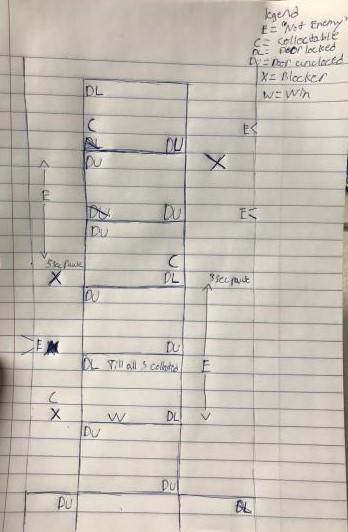 legend
E = "Not Enemy"
C = Collectable
DL = Door locked
DU = Door unclocked
X = Blocker
W = Win
DL
C
E<
DL
DU
X
DU
E
DU
DU
E<
DU
C
3 sec pause
DL
3 sec pause
X
DU
DU
>E
DL Till all 3 collected
E
C
X
W
DL
DU
DU
DU
DL